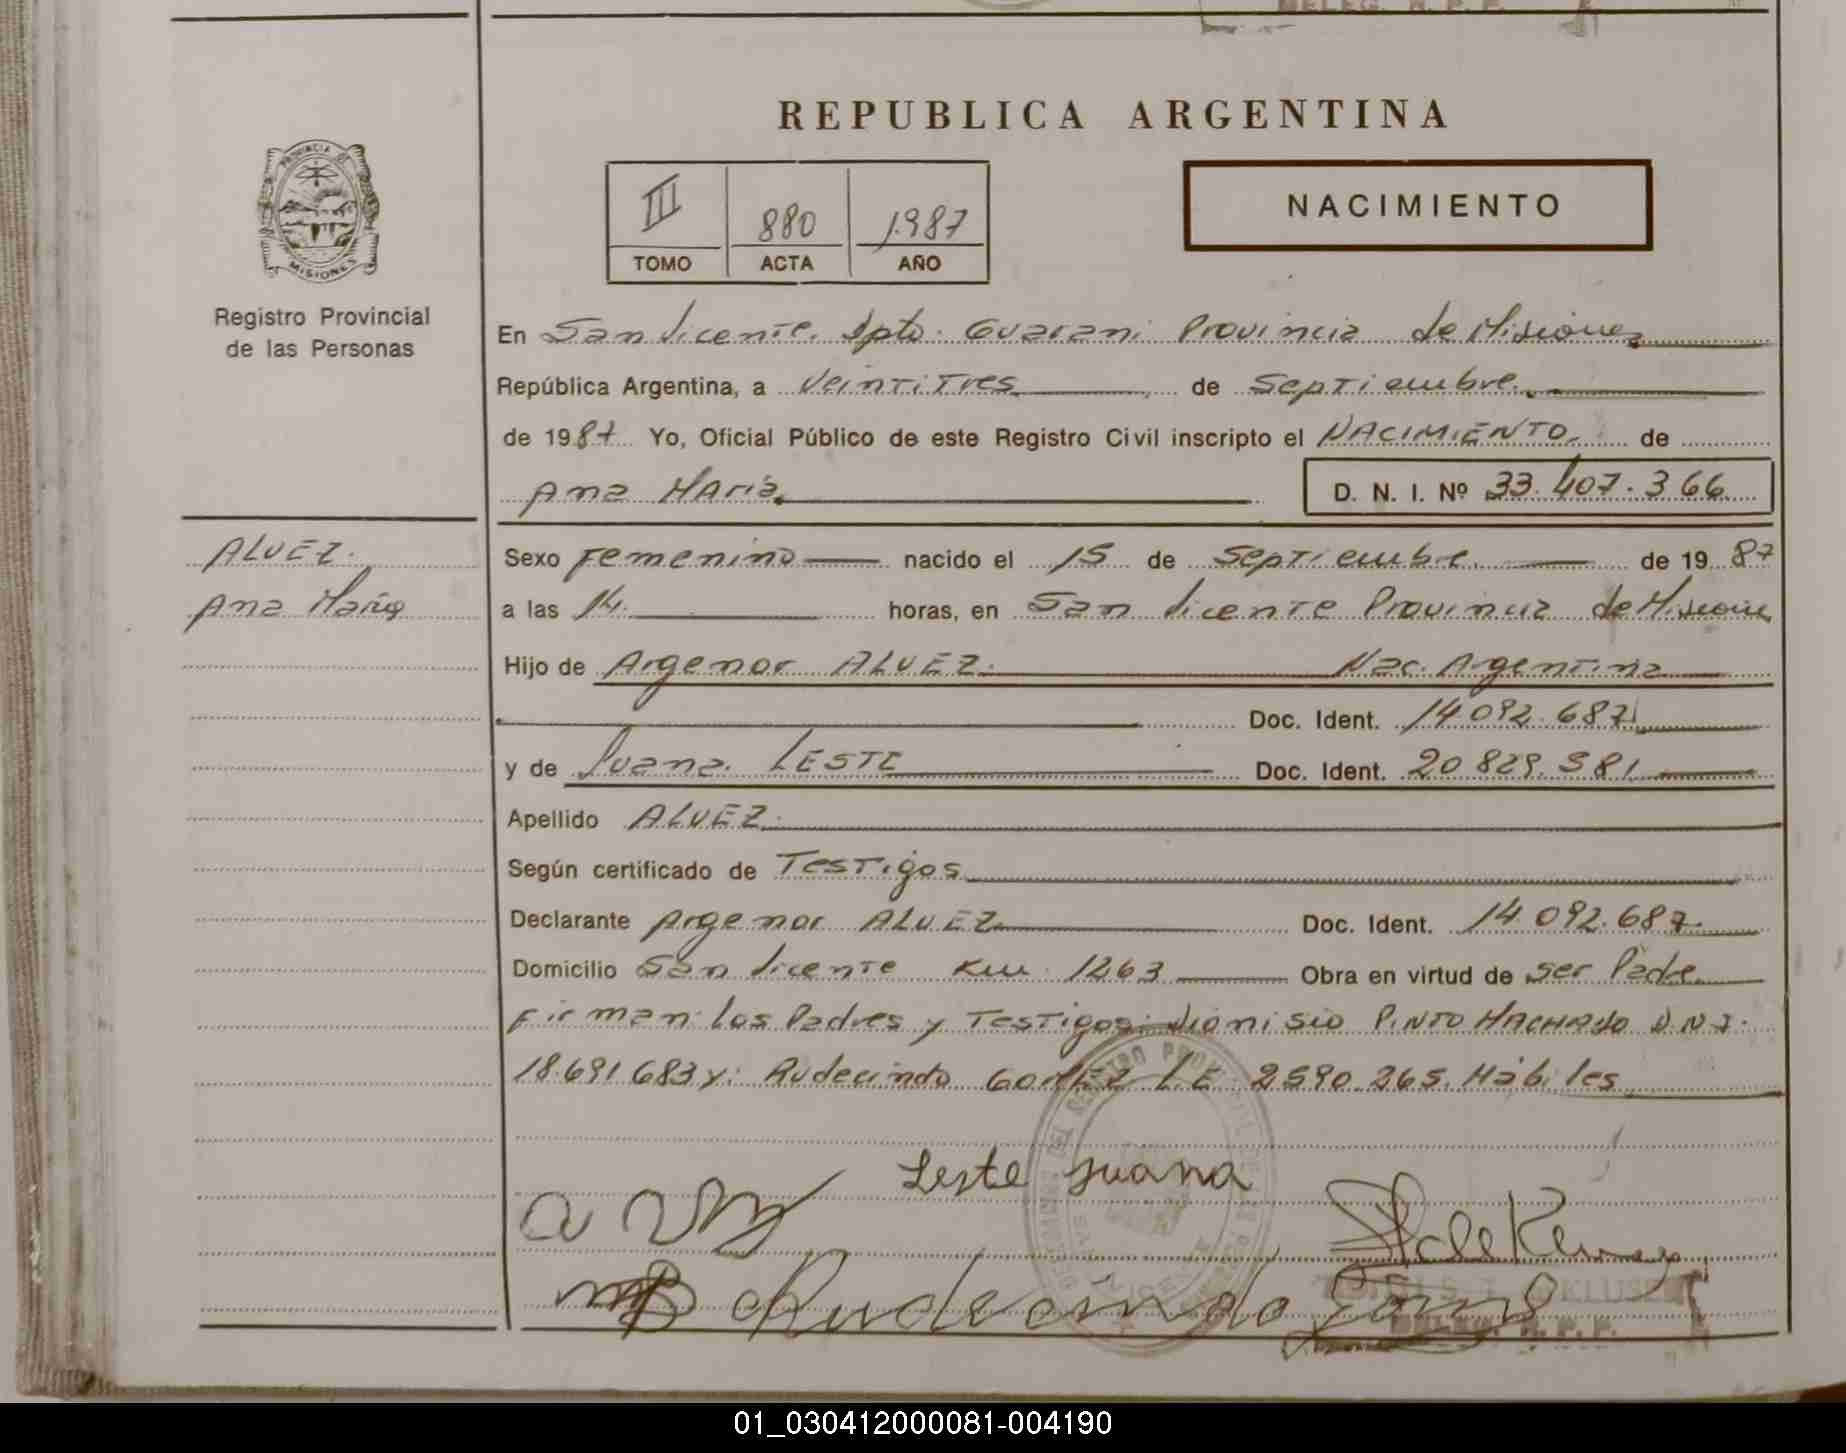 DELEG. R. P. P.
REPUBLICA ARGENTINA
PROVINCIA DE
MISIONES
Registro Provincial
de las Personas
III 880 1.987
TOMO ACTA AÑO
NACIMIENTO
En San Vicente. Dpto. Guarani Provincia de Misiones
República Argentina, a Veintitres de Septiembre.
de 1987 Yo, Oficial Público de este Registro Civil inscripto el NACIMIENTO. de
Ana Maria. D. N. I. Nº 33.407.366
ALVEZ.
Ana Maria
Sexo Femenino nacido el 15 de Septiembre. de 1987
a las 14. horas, en San Vicente Provincia de Misiones
Hijo de Argenor ALVEZ. Nac. Argentina
Doc. Ident. 14.092.687
y de Juana LESTE Doc. Ident. 20.829.381
Apellido ALVEZ.
Según certificado de Testigos
Declarante Argenor ALVEZ Doc. Ident. 14.092.687.
Domicilio San Vicente Km. 1263 Obra en virtud de ser Padre
Firman los Padres y Testigos: Dionisio PINTO MACHADO D.N.I.
18.691.683 y: Rudecindo GOMEZ L.E. 2590.265. Hábiles
Leste Juana
Rudecindo
DELEG. R. P. P.
01_030412000081-004190